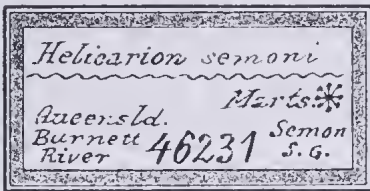 Helicarion semoni
Marts.
Queensld.
Burnett 46231 Semon
River S. G.